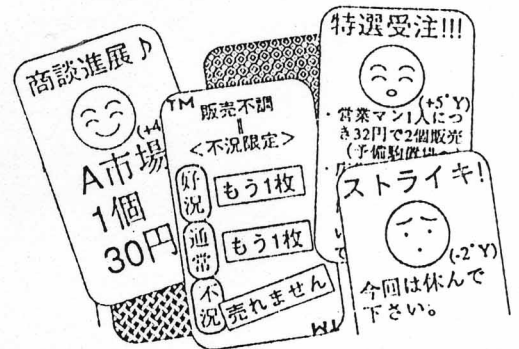 商談進展♪
(+4
A市場
1個
30円
TM
販売不調
||
<不況限定>
好況
もう1枚
通常
もう1枚
不況
売れません
TM
特選受注!!!
(+5°Y)
・営業マン1人につ
き32円で2個販売
ストライキ!
(-2°Y)
今回は休んで
下さい。